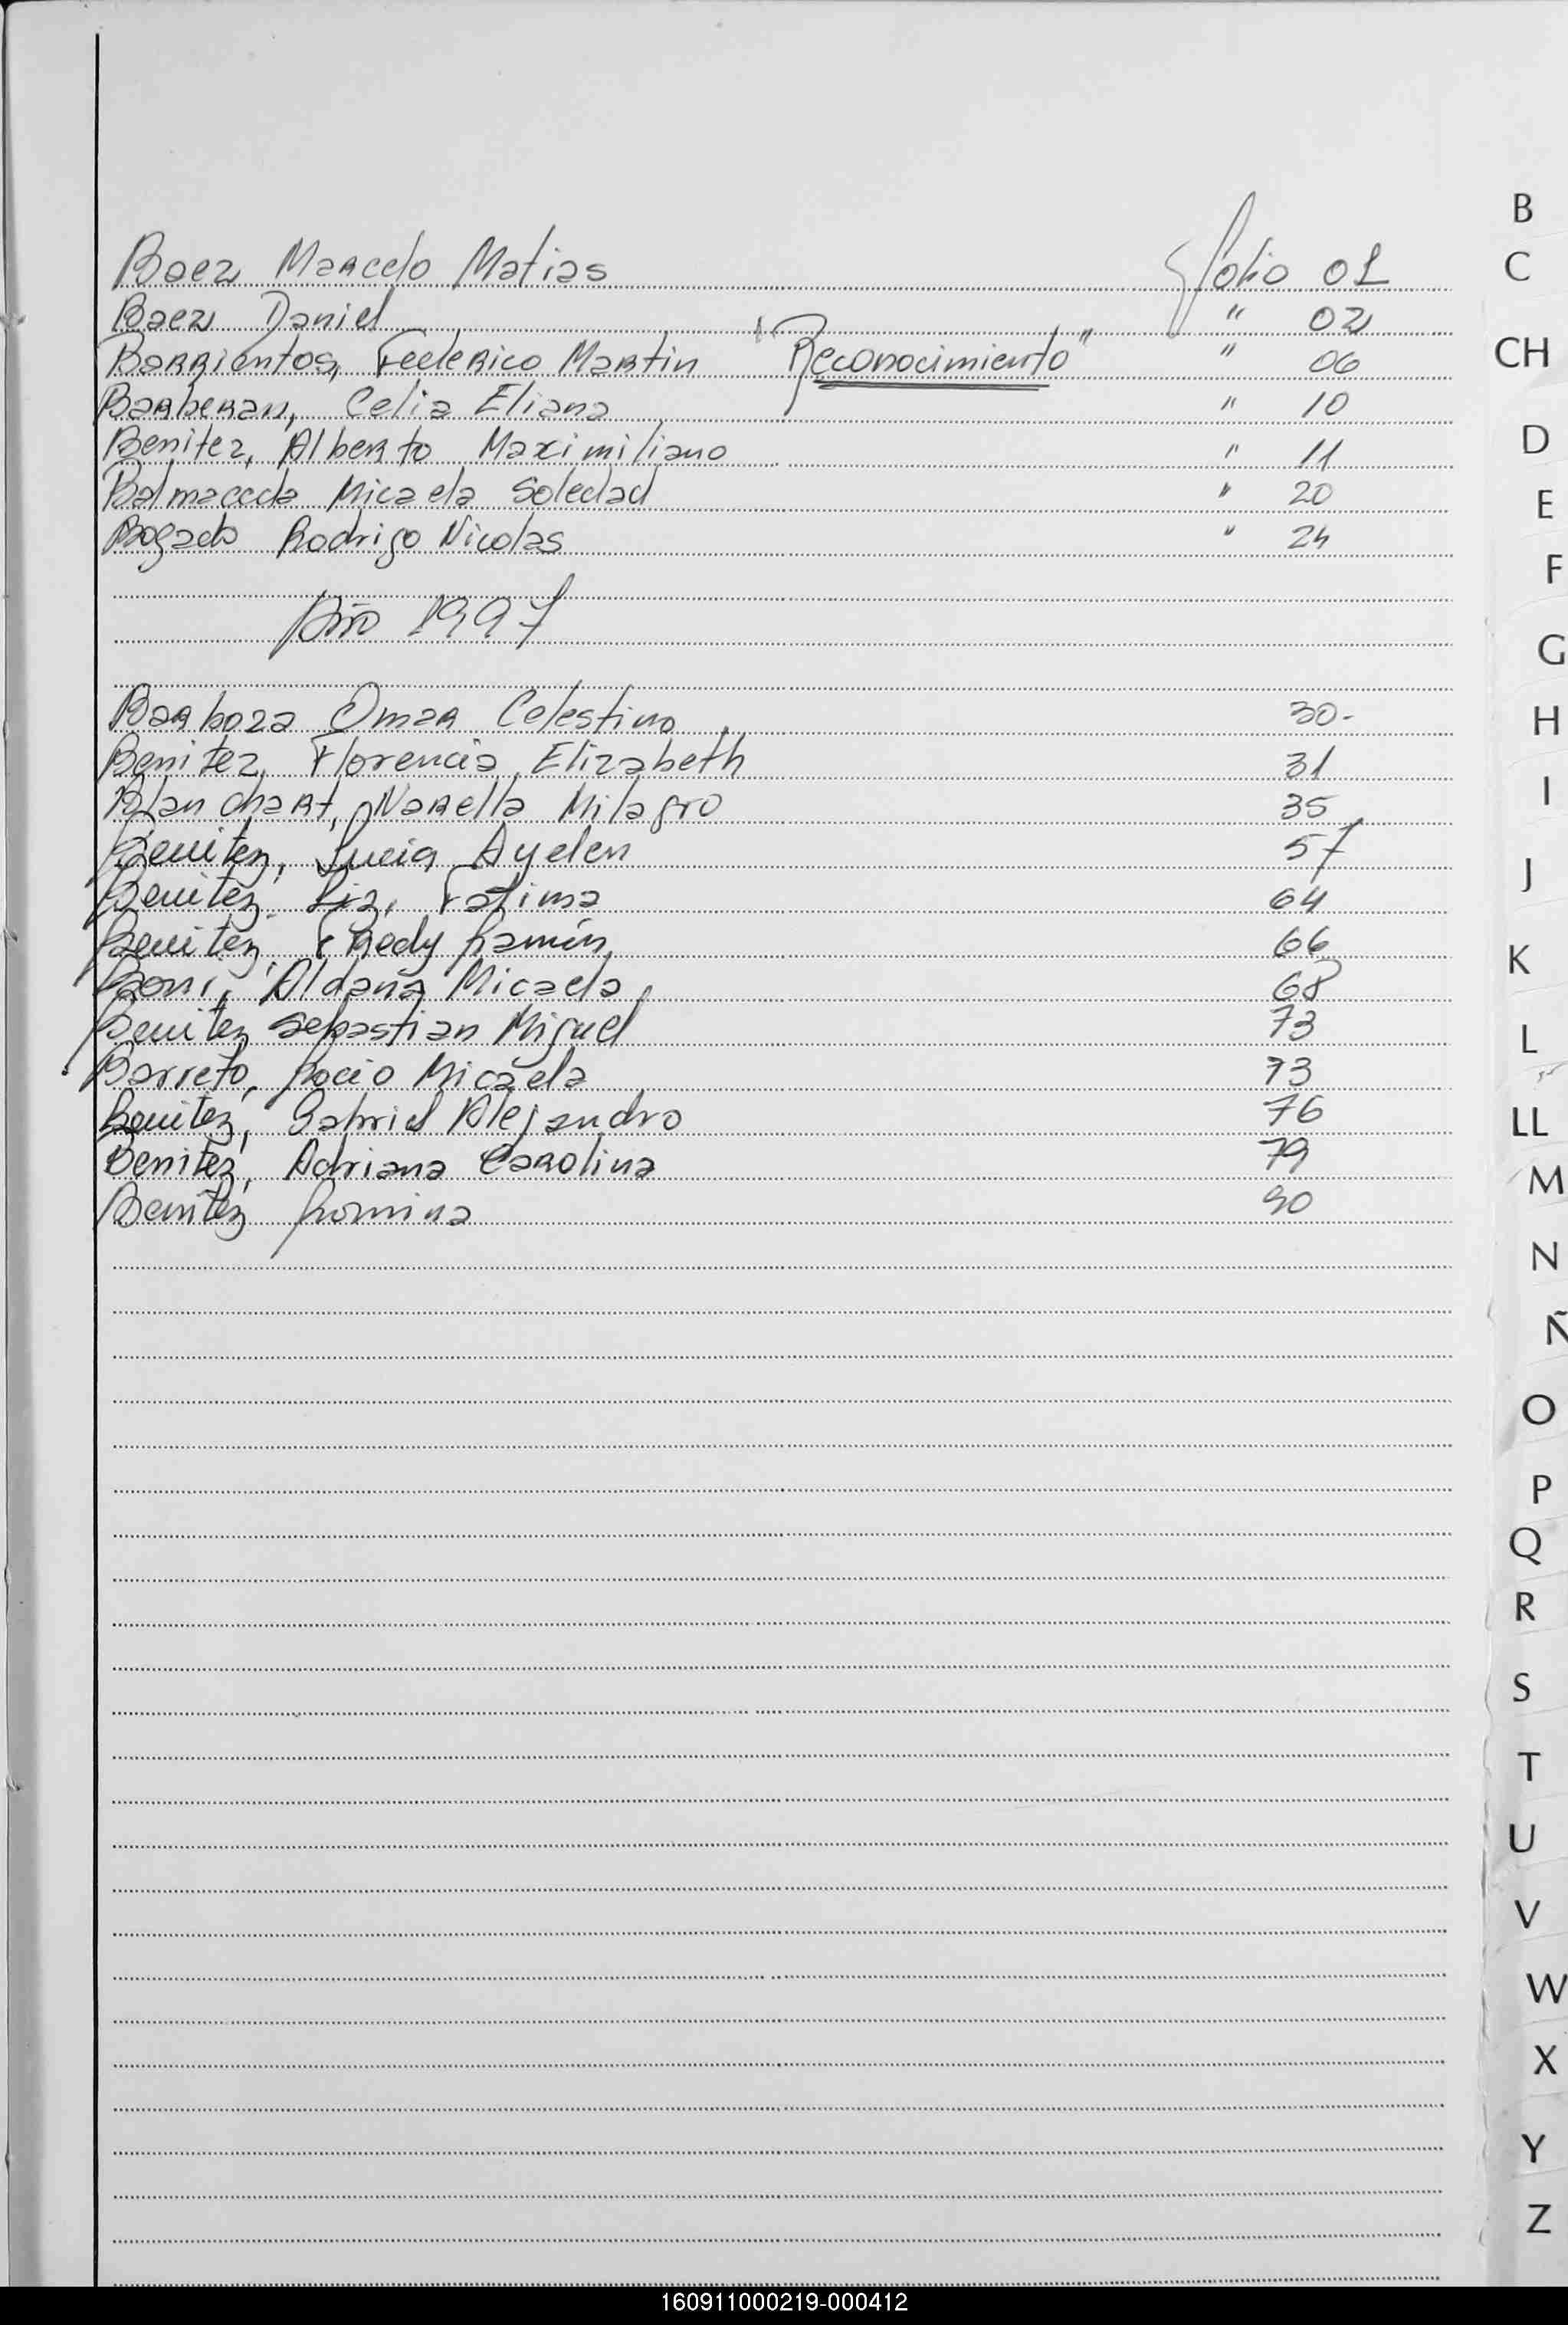 Baez Marcelo Matias folio 01
Baez Daniel " 02
Barrientos, Federico Martin "Reconocimiento" " 06
Barberan, Celia Eliana " 10
Benitez, Alberto Maximiliano " 11
Balmaceda Micaela Soledad " 20
Bogado Rodrigo Nicolas " 24
Año 1997
Barboza Omar Celestino 30-
Benitez, Florencia Elizabeth 31
Blanchart, Narella Milagro 35
Benitez, Lucia Ayelen 57
Benitez Liz, Fatima 64
Benitez, Fredy Ramón 66
Boni, Aldana Micaela 68
Benitez Sebastian Miguel 73
Barreto, Rocio Micaela 73
Benitez, Gabriel Alejandro 76
Benitez, Adriana Carolina 79
Benitez Romina 90
B
C
CH
D
E
F
G
H
I
J
K
L
LL
M
N
Ñ
O
P
Q
R
S
T
U
V
W
X
Y
Z
160911000219-000412